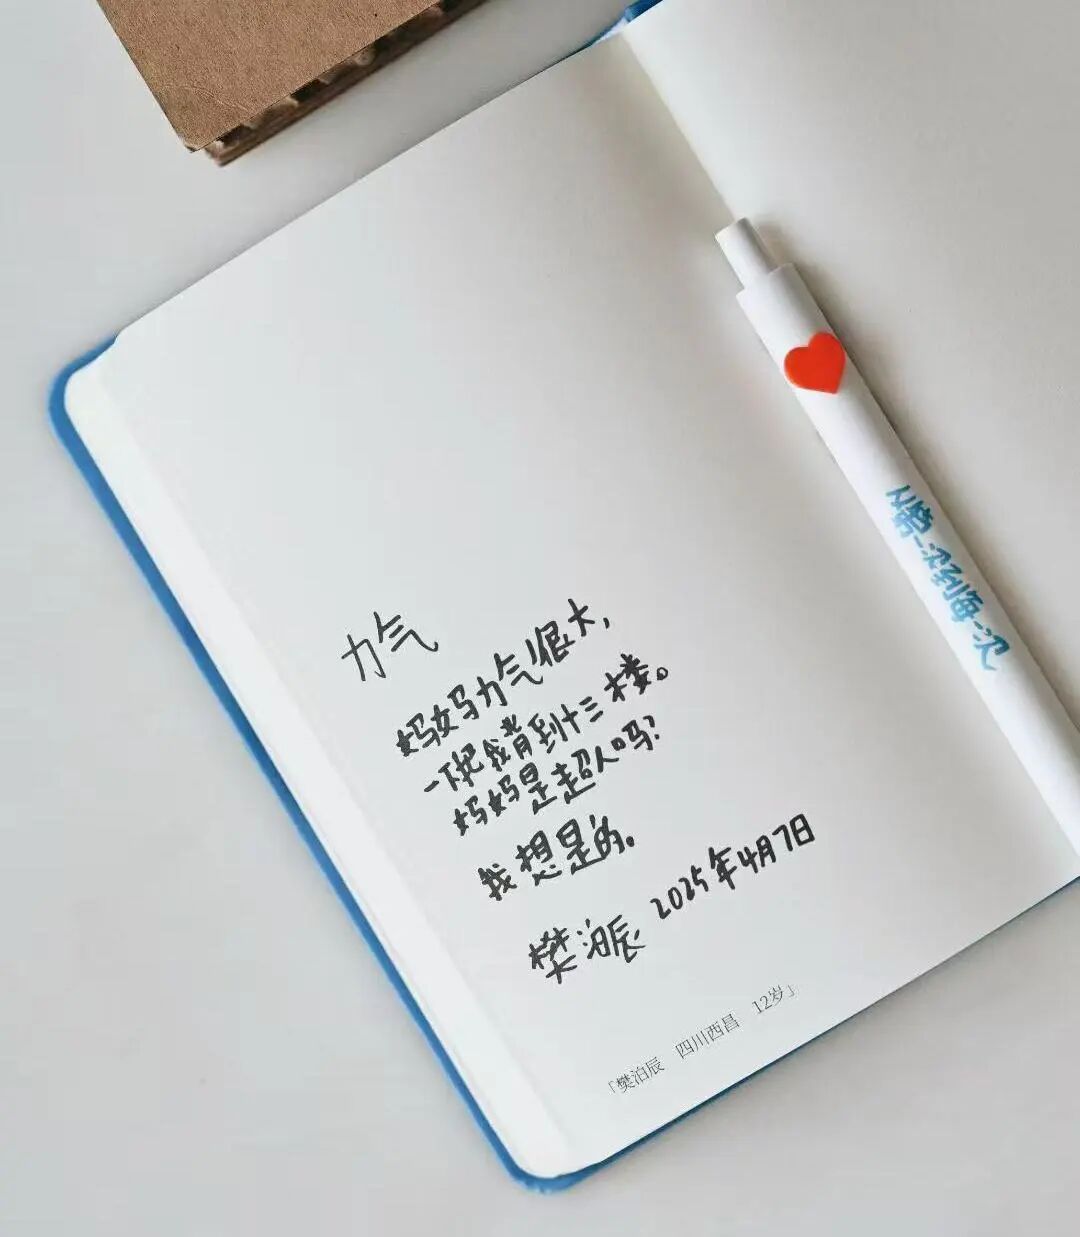 力气
妈妈力气很大,
一下把我背到十三楼。
妈妈是超人吗?
我想是的。
樊泊辰 2025年4月7日
「樊泊辰 四川西昌 12岁」
第一次到每一次